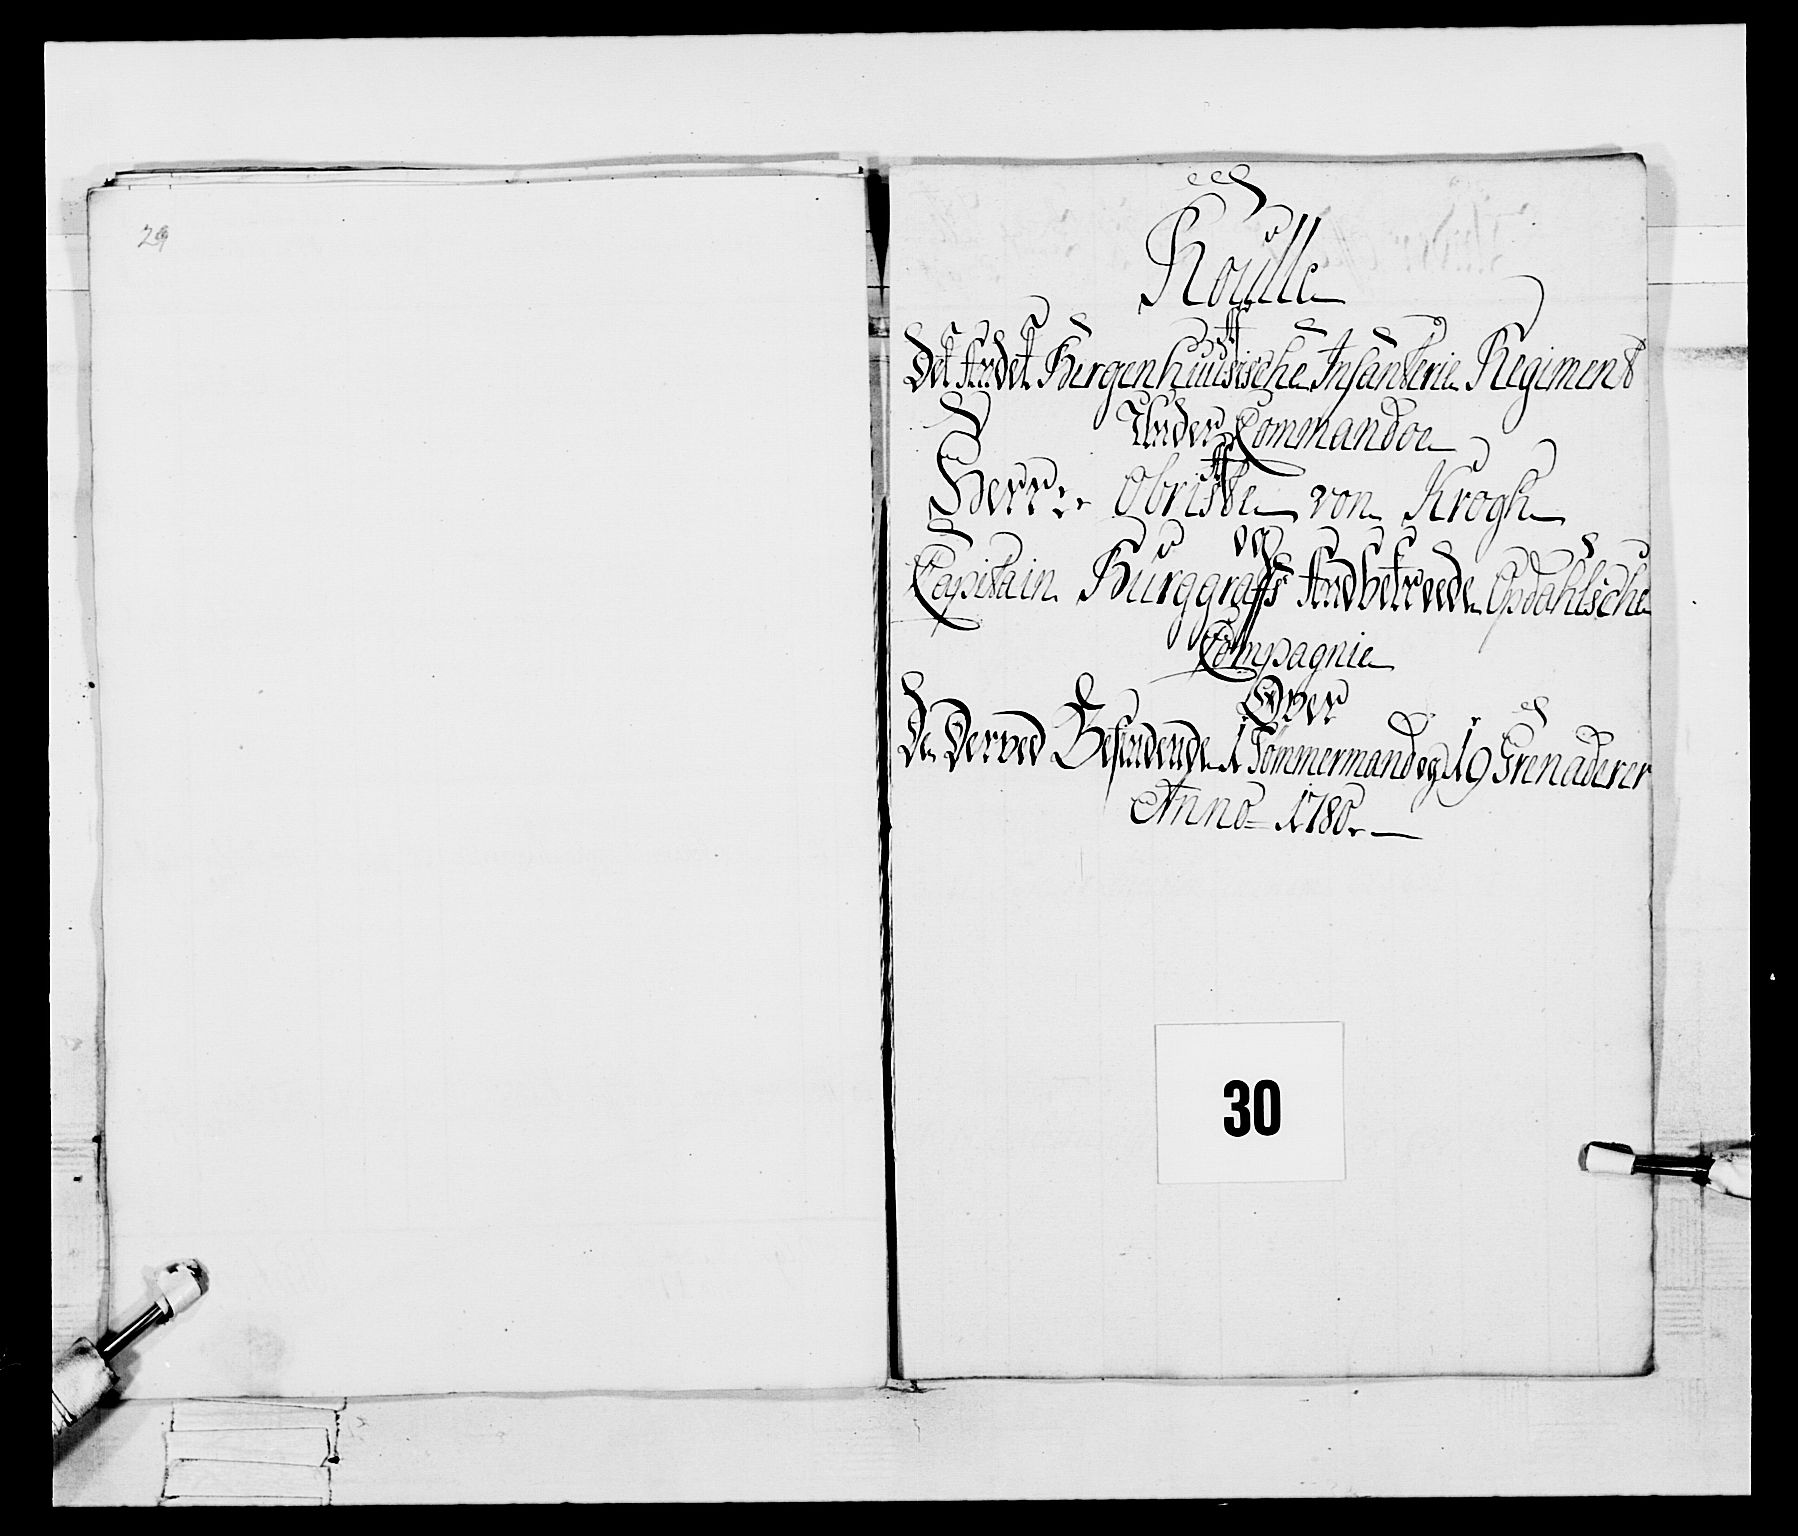 29
Roulle
Det Andet Bergenhuusische Infanterie Regiment
Under Commandoe
Herr Obriste von Krogh
og
Capitain Burggraffs Andbetroede Opdahlsche
Compagnie
Over
De Derved Befindende 1 Tömmermand og 19 Grenaderer
Anno 1780.
30